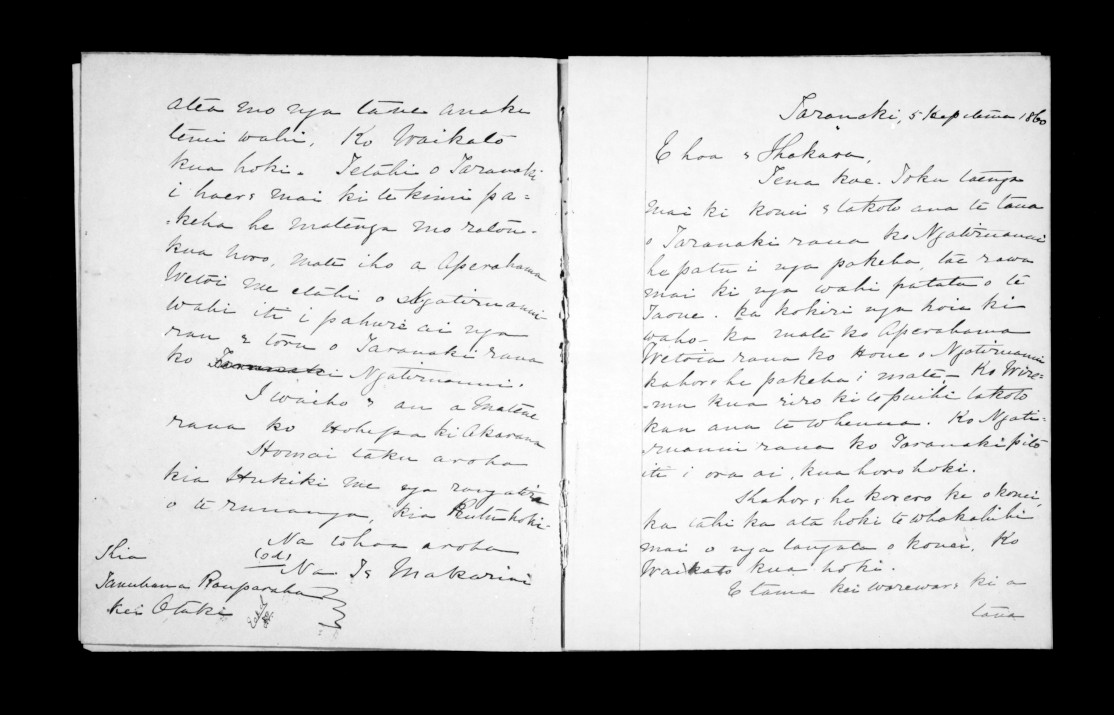 atea mo nga tane anake
tenei wahi, Ko Waikato
kua hoki. Tetahi o Taranaki
i haere mai ki te kimi pa=
=keha he matenga mo ratou.
kua horo, mate iho a Aperahama
Wetoi me etahi o Ngatiruanui
wahi iti i pahure ai nga
rau e toru o Taranaki raua
ko Ngatiruanui.
I waiho e au a Matene
raua ko Hohepa ki Akarana
Homai taku aroha
kia Hukiki me nga rangatira
o te runanga, kia hoki.
Na to hoa aroha
(od)
Na Te Makarini
Kia
Tamihana Rauparaha
kei Otaki
Taranaki, 5 Hepetema 1860
E hoa e Ihakara,
Tena koe. Toku taenga
mai ki konei e takoto ana te taua
o Taranaki raua ko Ngatiruanui
he patu i nga pakeha, tae rawa
mai ki nga wahi patata o te
Taone. ka kokiri nga hoia ki
waho – ka mate ko Aperahama
Wetoia raua ko Hone o Ngatiruanui
kahore he pakeha i mate – Ko Wire=
=mu kua riro ki te puihi takoto
kau ana te whenua. Ko Ngati=
ruanui raua ko Taranaki pito
iti i ora ai, kua horo hoki.
Kahore he korero ke o konei,
ka tahi ka ata hoki te whakahihi
mai o nga tangata o konei. Ko
Waikato kua hoki.
E tama kei wareware ki a
taua